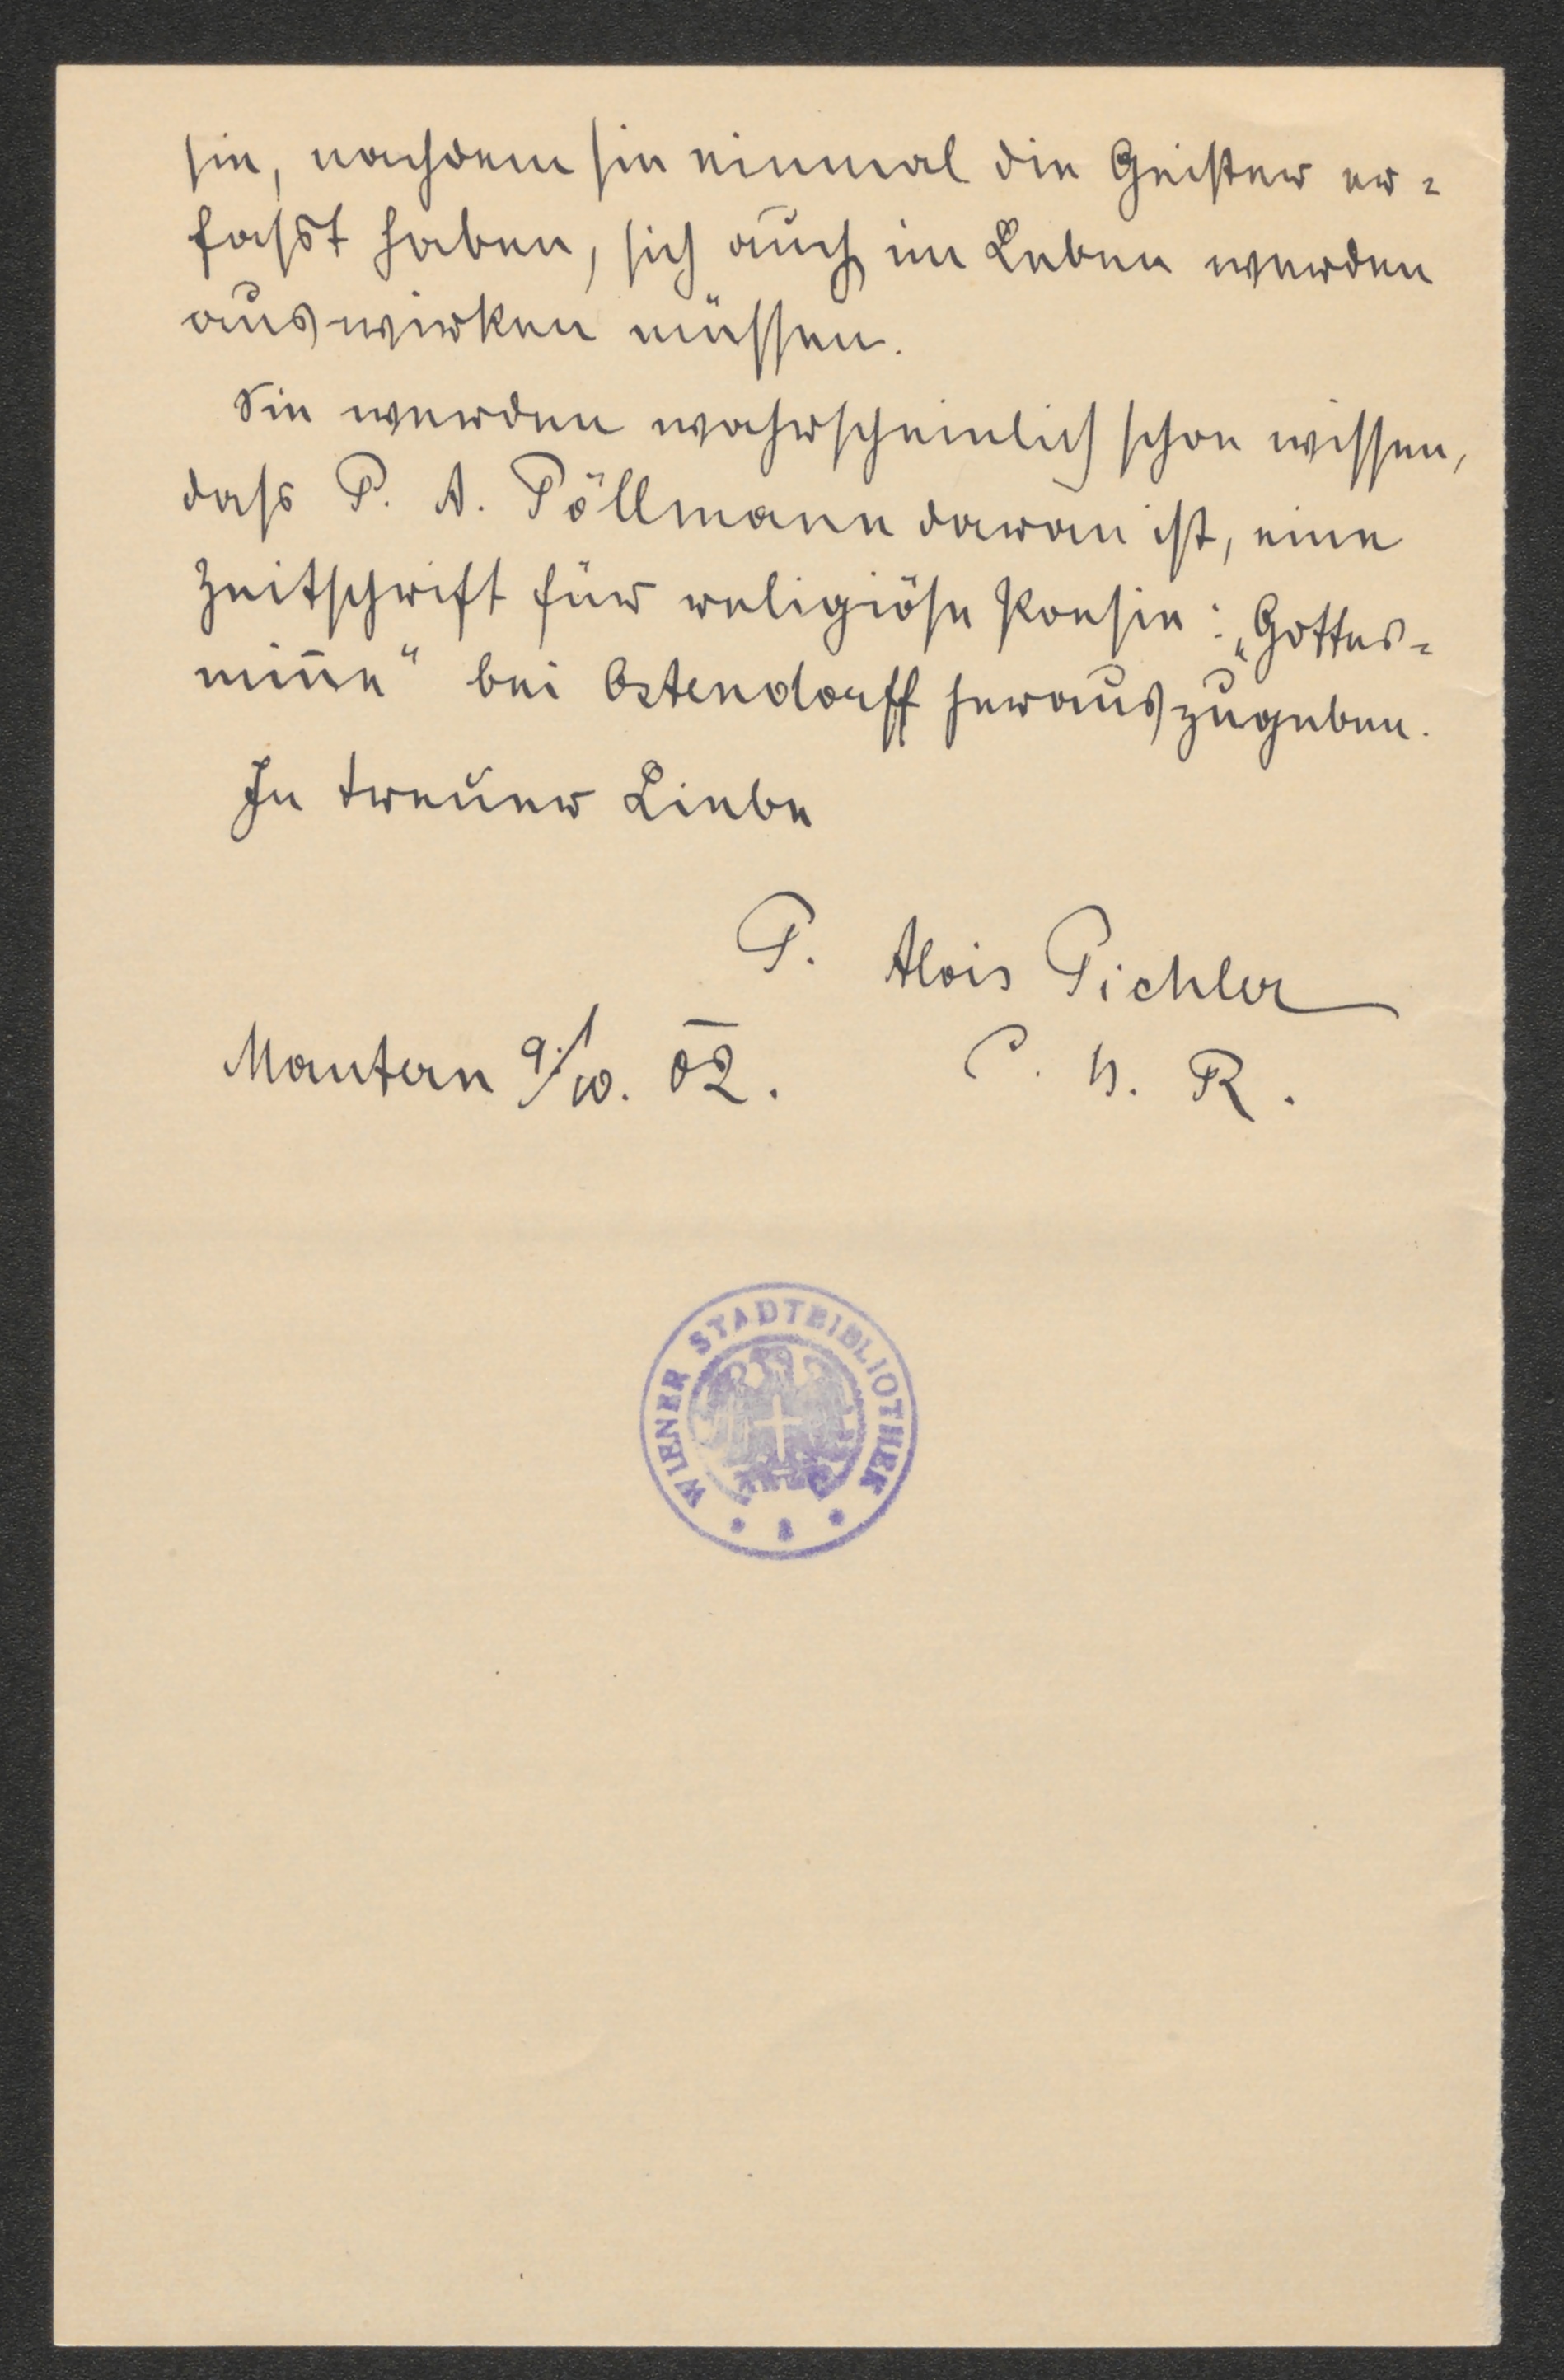 sie, nachdem sie einmal die Geister er=
fasst haben, sich auch im Leben werden
auswirken müssen.
Sie werden wahrscheinlich schon wissen,
dass P. A. Pöllmann daran ist, eine
Zeitschrift für religiöse Poesie: „Gottes=
mine̅“ bei Ostendorff herauszugeben.
In treuer Liebe
P. Alois Pichler
Mantern 9./10. 02. C. Ss. R.
WIENER STADTBIBLIOTHEK